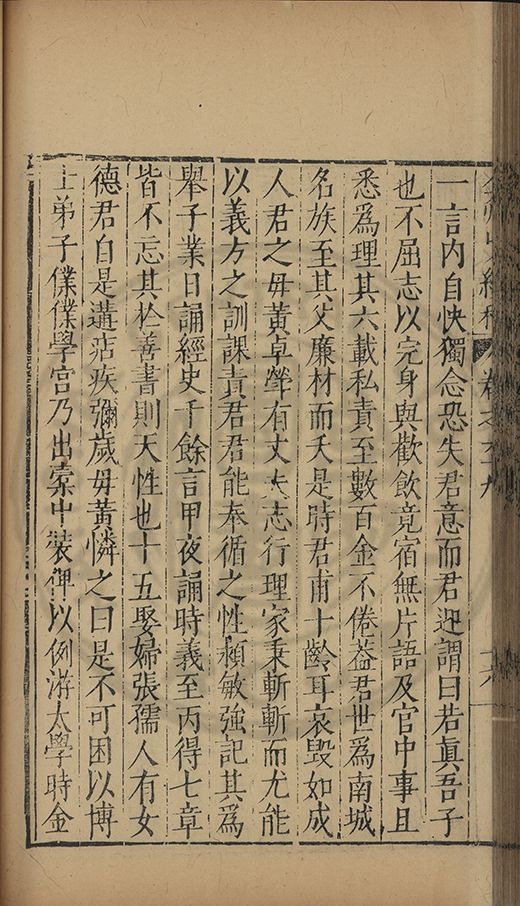 卷之六十九
十六
一言内自快獨念恐失君意而君迎謂曰若眞吾子
也不屈志以完身與歡飲竟宿無片語及官中事且
悉爲理其六載私責至數百金不倦葢君世爲南城
名族至其父廉材而夭是時君甫十齡耳哀毀如成
人君之毋黃卓犖有丈夫志行理家秉斬斬而尤能
以義方之訓課責君君能奉循之性頴敏強記其爲
舉子業日誦經史千餘言甲夜誦時義至丙得七章
皆不忘其於善書則天性也十五娶婦張孺人有女
德君自是遘痁疾彌歲毋黃憐之曰是不可困以博
士弟子僕僕學宮乃出橐中裝俾以例游太學時金